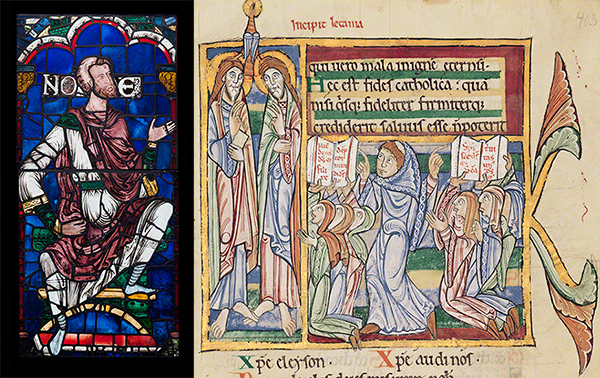 NOE
Incipit letania
403
qui uero mala inigne eternū.
Hec est fides catholica: quā
nisi q̇sq; fideliter firmiterq;
crediderit saluus esse n̄ poterit
Xp̄e eleyson. Xp̄e audi nos.